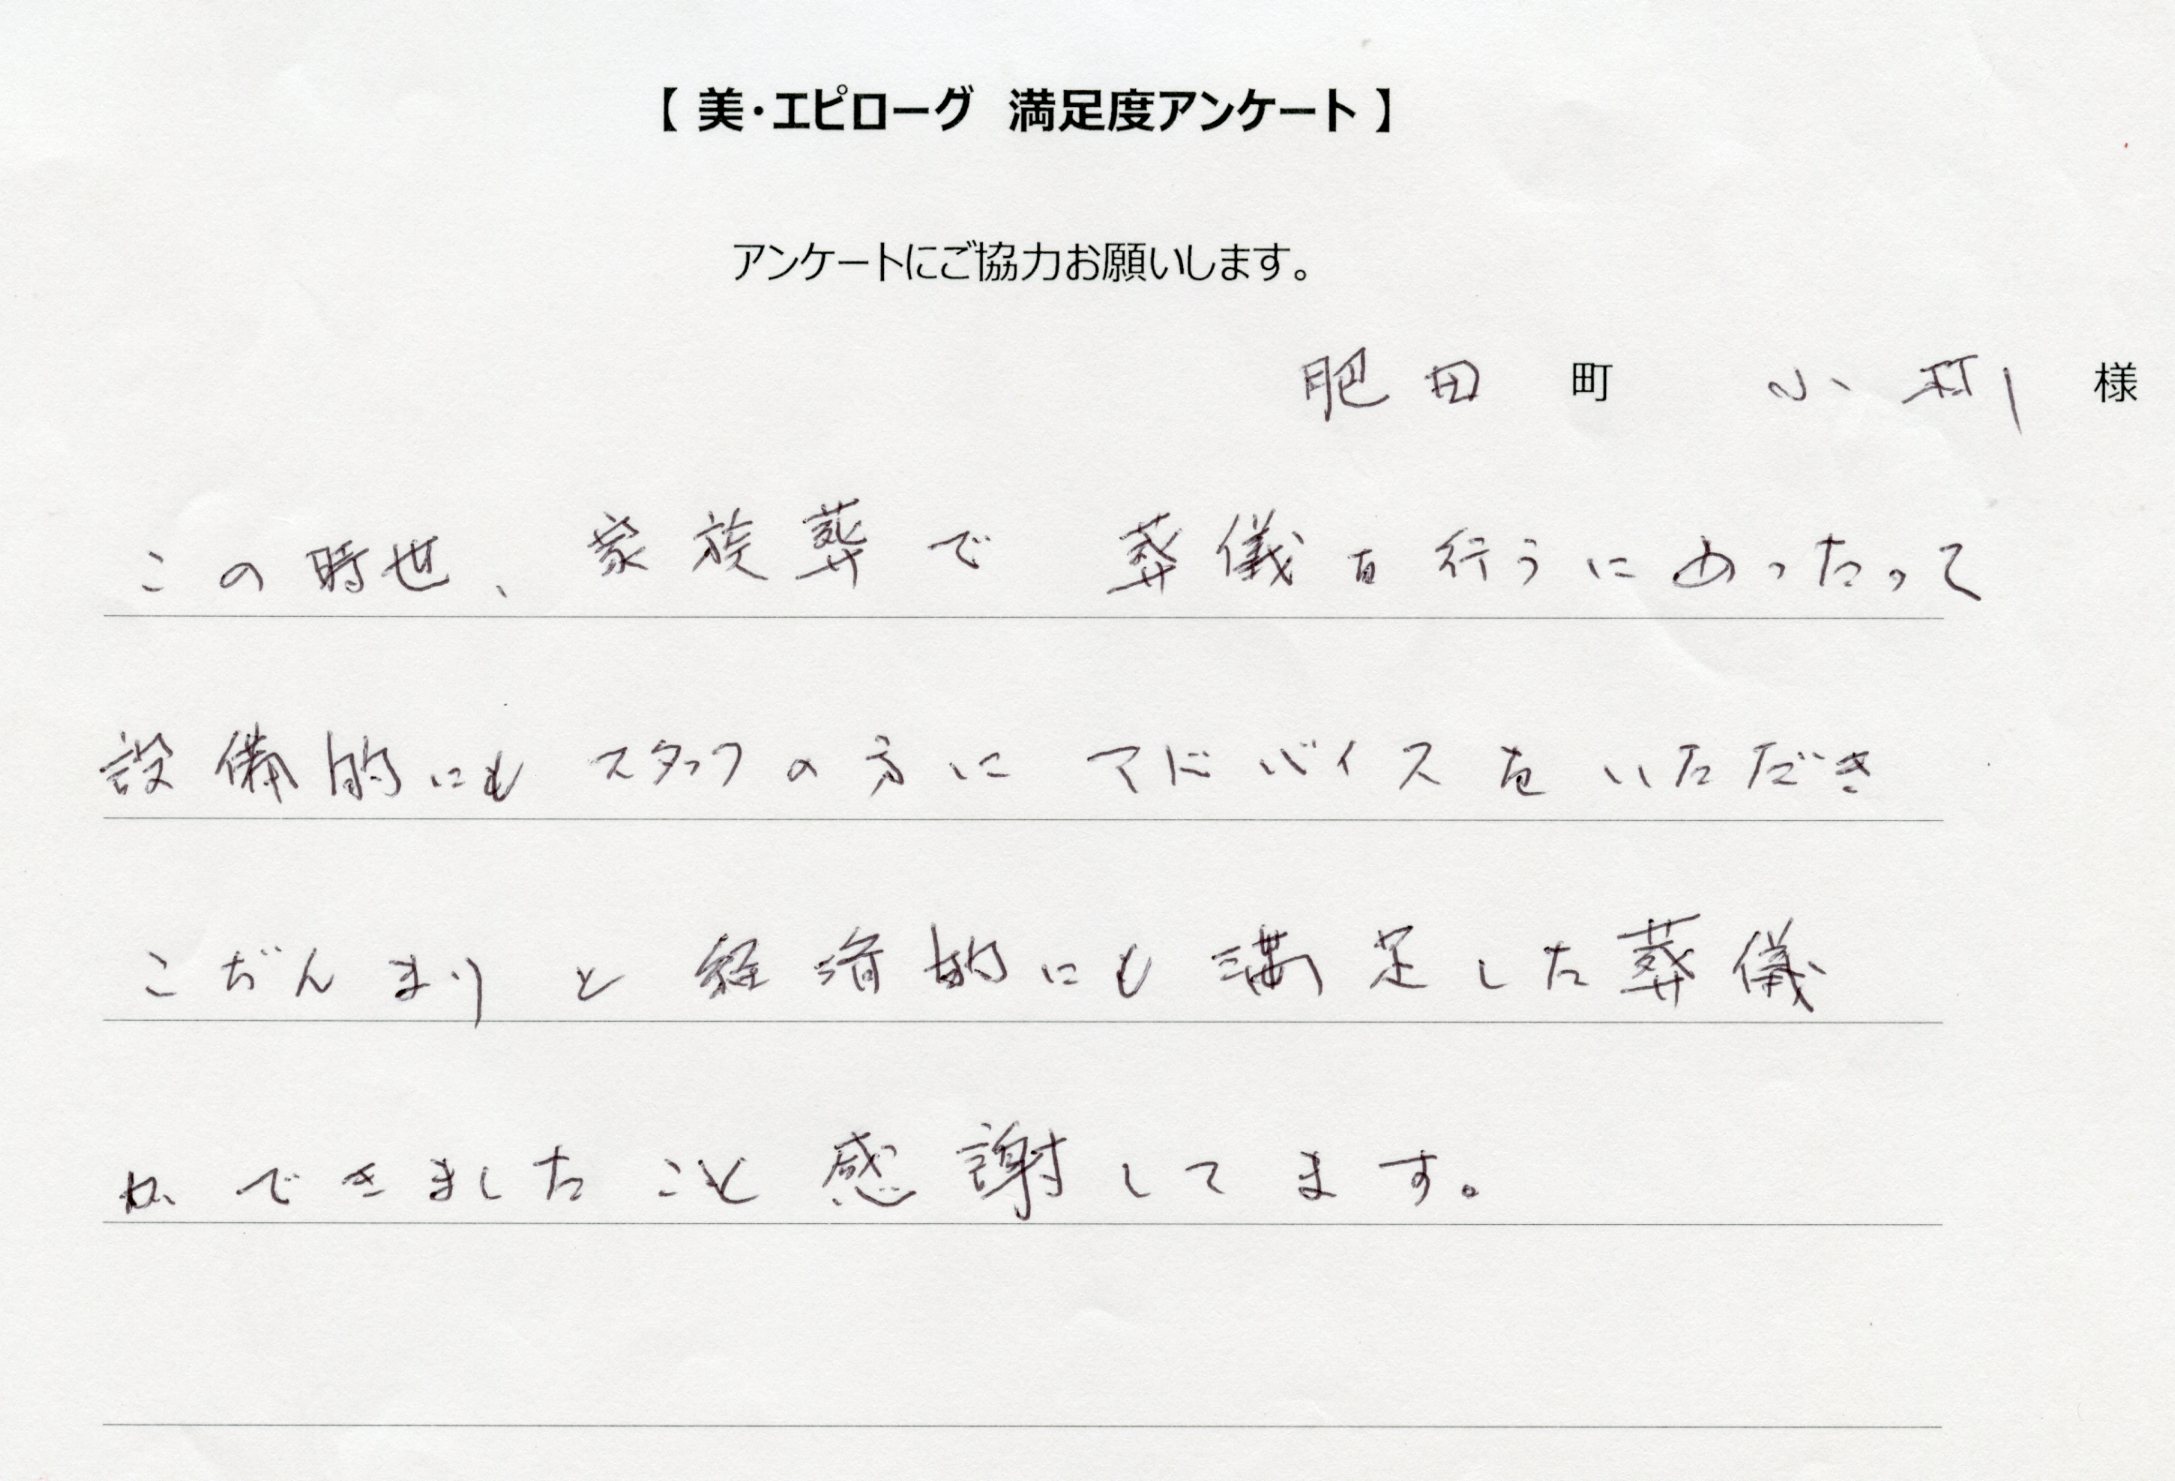 【 美・エピローグ 満足度アンケート 】
アンケートにご協力お願いします。
肥田 町 小 様
この時世、家族葬で 葬儀を行うにあったって
設備的にも スタッフの方に アドバイスを いただき
こぢんまり と 経済的にも 満足した葬儀
が できました こと 感謝してます。